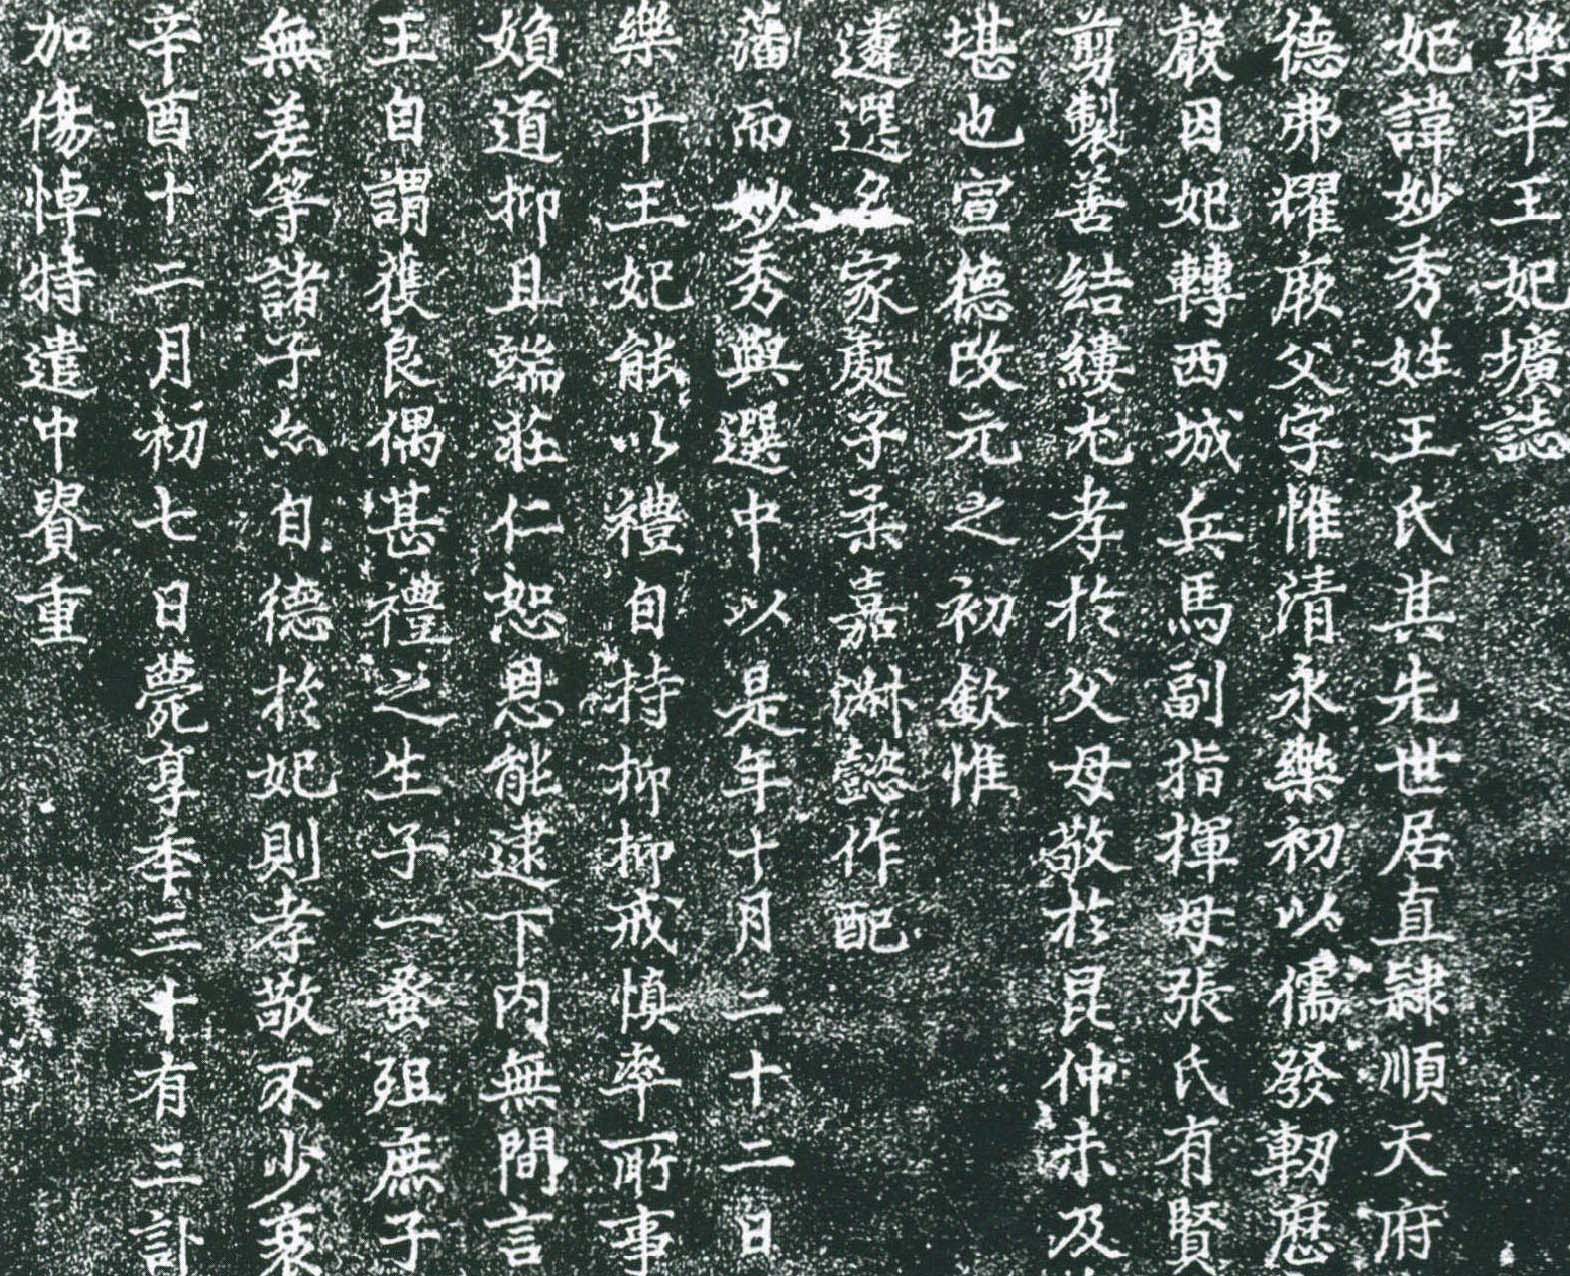 樂平王妃壙誌
妃諱妙秀姓王氏其先世居直隸順天府
德弗耀厥父字惟清永樂初以儒發軔歷
嚴因妃轉西城兵馬副指揮母張氏有賢
剪製善結縷尤孝於父母敬於昆仲未及
堪也宣德改元之初欽惟
遴選名家處子柔嘉淑懿作配
藩而妙秀與選中以是年十月二十二日
樂平王妃能以禮自持抑抑戒慎率所事
媍道抑且端莊仁恕恩能逮下內無間言
王自謂獲良偶甚禮之生子一蚤殂庶子
無差等諸子亦自德於妃則孝敬不少衰
辛酉十二月初七日薨享年三十有三訃
加傷悼特遣中賵重